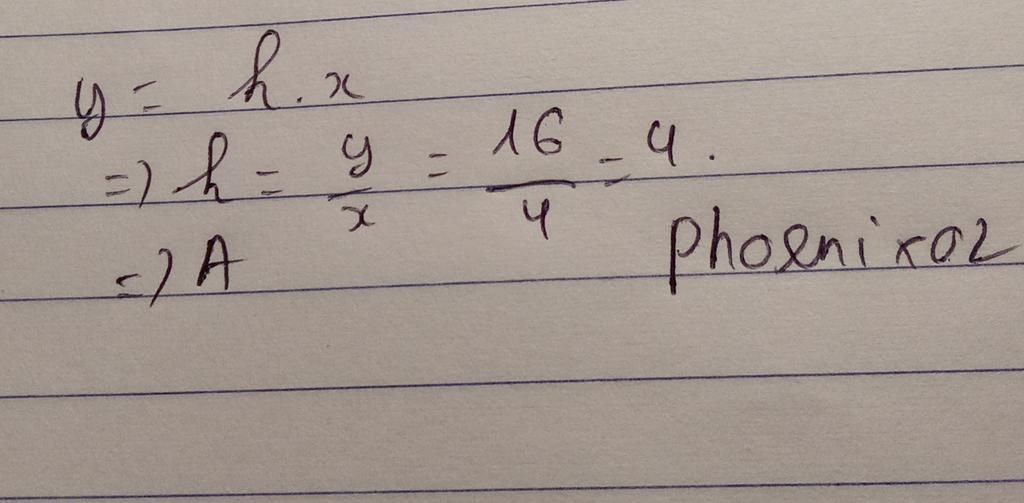 y = h.x
=> h = y/x = 16/4 = 4.
=> A
phoenixoz